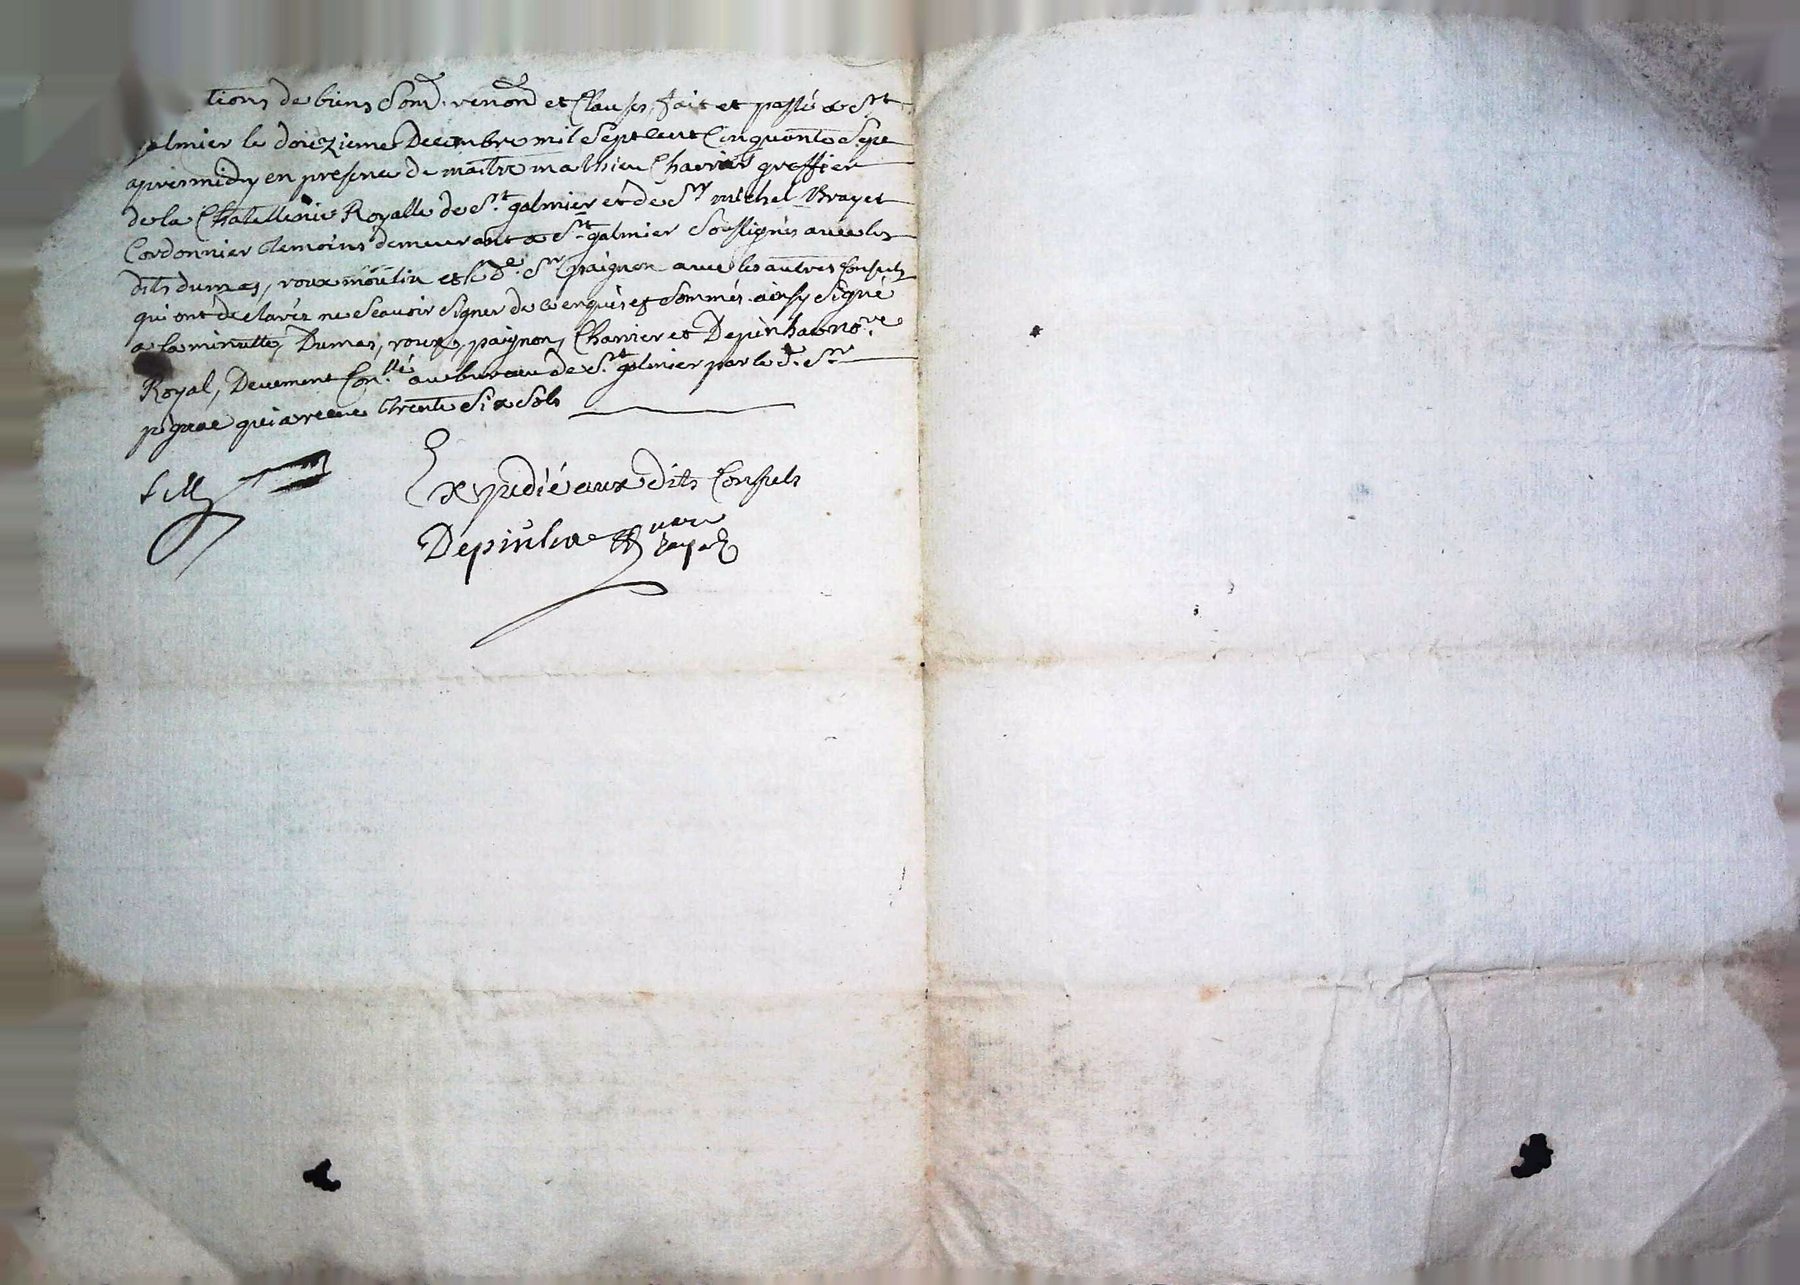 tions de biens Som. renon et Clauses, fait et passé a St
galmier le doiezieme Decembre mil Sept Cent Cinquante Sept
apres midy en presence de maître mathieu Charvier greffier
de la Chatellenie Royalle de St galmier et de Sr michel Brayet
Cordonnier temoins demeurant a St galmier Soussignés avec les
dits dumas, roux moulin et le d. Sr paignon avec les autres Consuls
qui ont declarés ne Scavoir Signer de ce enquis et Sommés ainsy Signé
a la minutte, Dumas, roux, paignon, Charvier et Depinhac no.re
Royal, Deuement Con.llé au bureau de St galmier par le d. Sr
qui a receu trente Six Sols
Expedié aux dits Consuls
Depinhac